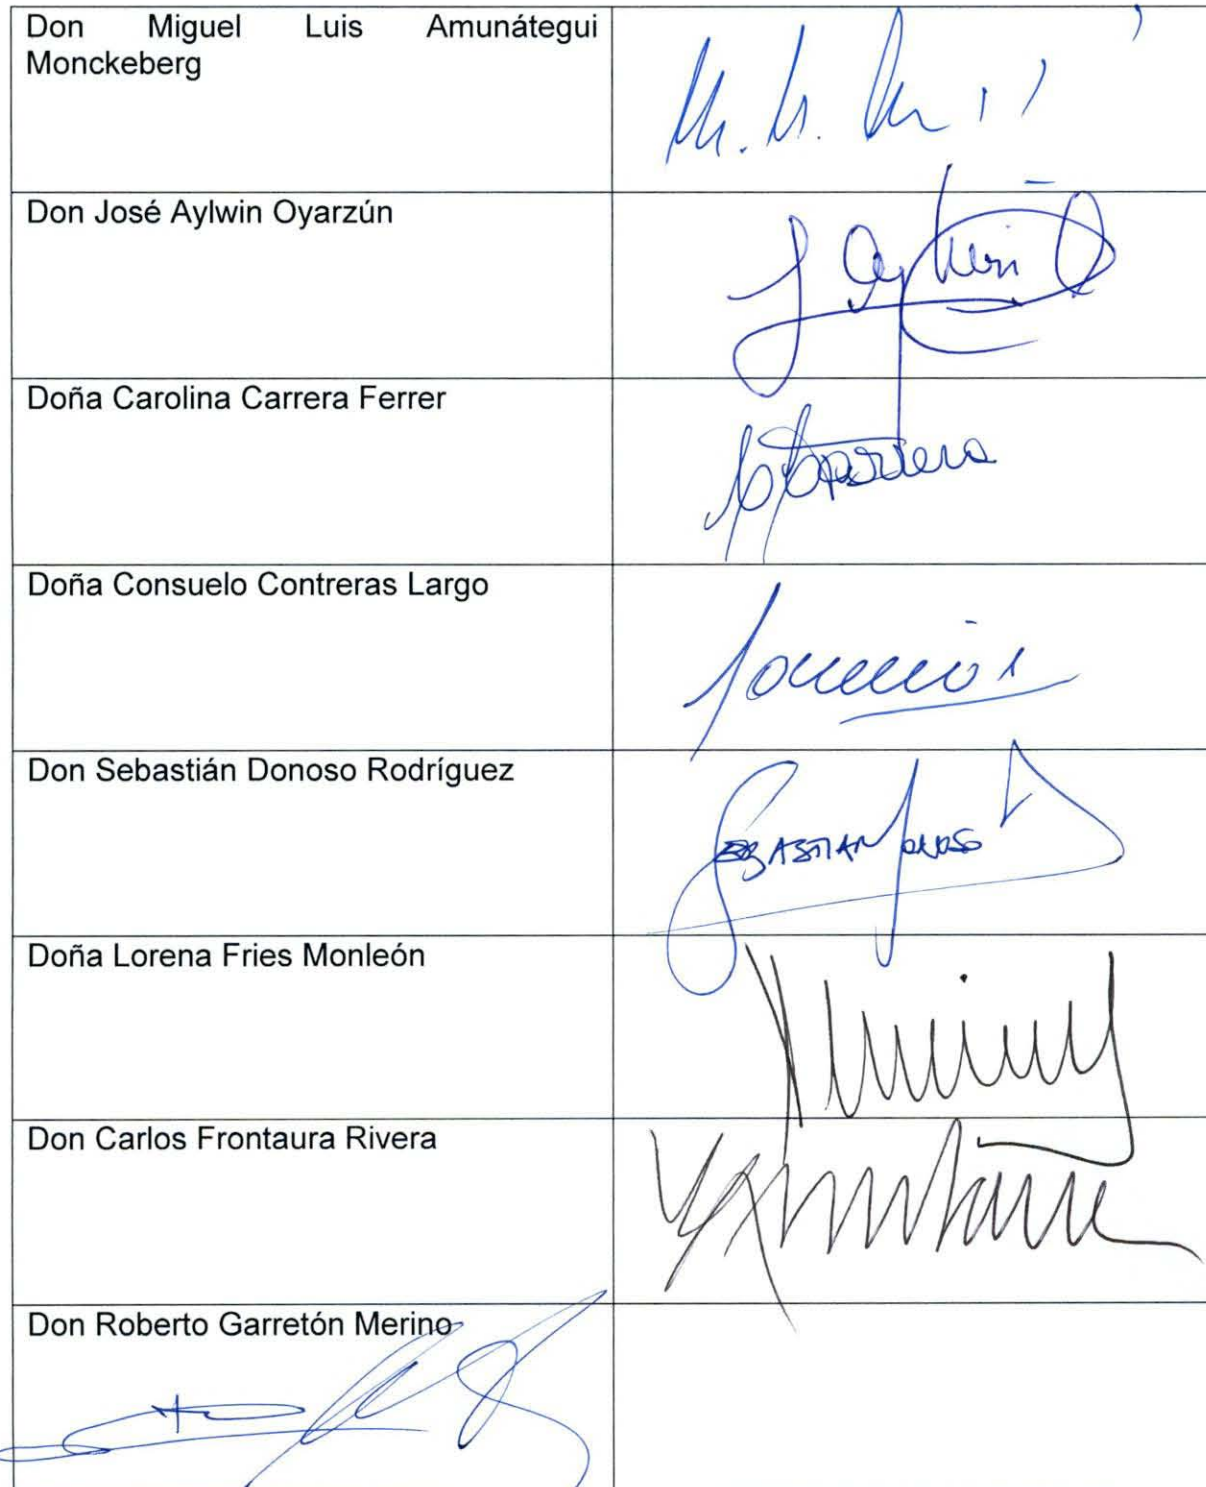 Don Miguel Luis Amunátegui
Monckeberg
Don José Aylwin Oyarzún
Doña Carolina Carrera Ferrer
Doña Consuelo Contreras Largo
Don Sebastián Donoso Rodríguez
SEBASTIAN DONOSO
Doña Lorena Fries Monleón
Don Carlos Frontaura Rivera
Don Roberto Garretón Merino